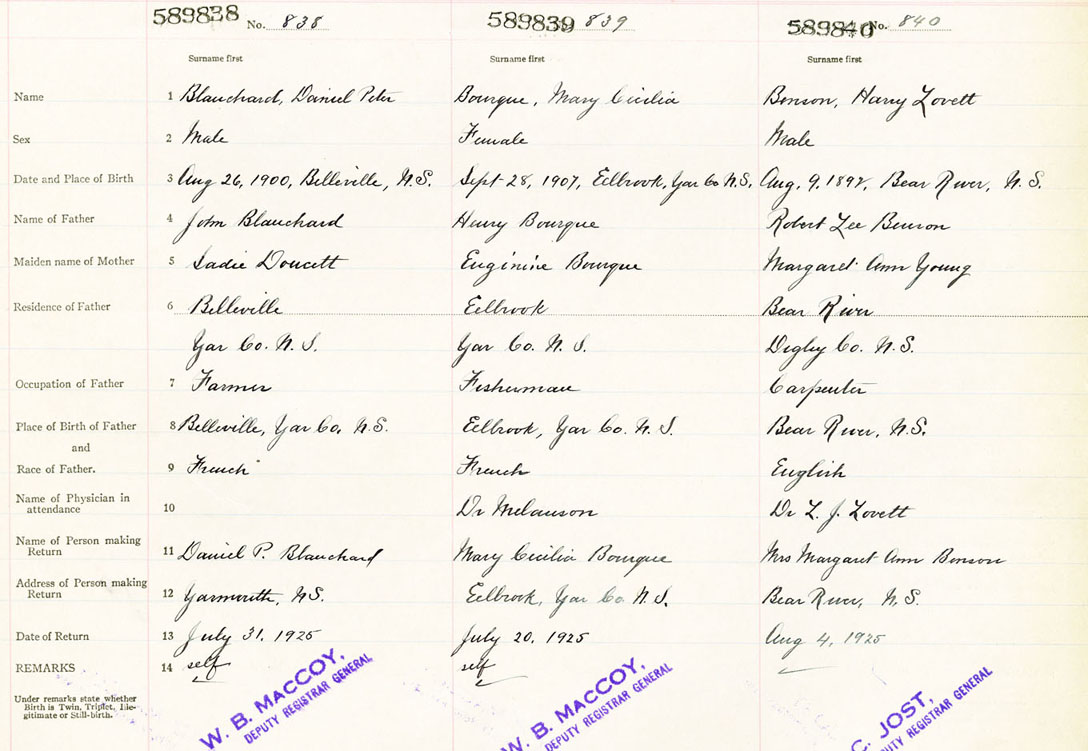 589838 No. 838 589839 839 589840 No. 840
Surname first Surname first Surname first
Name 1 Blanchard, Daniel Peter Bourque, Mary Cicilia Benson, Harry Lovett
Sex 2 Male Female Male
Date and Place of Birth 3 Aug 26, 1900, Belleville, N.S. Sept 28, 1907, Eelbrook, Yar Co N.S. Aug. 9, Bear River, N.S.
Name of Father 4 John Blanchard Henry Bourque Robert Lee Benson
Maiden name of Mother 5 Sadie Doucett Euginine Bourque Margaret Ann Young
Residence of Father 6 Belleville Eelbrook Bear River
Yar Co. N.S. Yar Co. N.S. Digby Co. N.S.
Occupation of Father 7 Farmer Fisherman Carpenter
Place of Birth of Father 8 Belleville, Yar Co, N.S. Eelbrook, Yar Co. N.S. Bear River, N.S.
and
Race of Father. 9 French French English
Name of Physician in
attendance 10 Dr Melanson Dr L. J. Lovett
Name of Person making
Return 11 Daniel P. Blanchard Mary Cicilia Bourque Mrs Margaret Ann Benson
Address of Person making
Return 12 Yarmouth, N.S. Eelbrook, Yar Co. N.S. Bear River, N.S.
Date of Return 13 July 31, 1925 July 20, 1925 Aug 4, 1925
REMARKS 14 self self
Under remarks state whether
Birth is Twin, Triplet, Ille-
gitimate or Still-birth.
W. B. MACCOY,
DEPUTY REGISTRAR GENERAL
W. B. MACCOY,
DEPUTY REGISTRAR GENERAL
C. JOST,
UTY REGISTRAR GENERAL